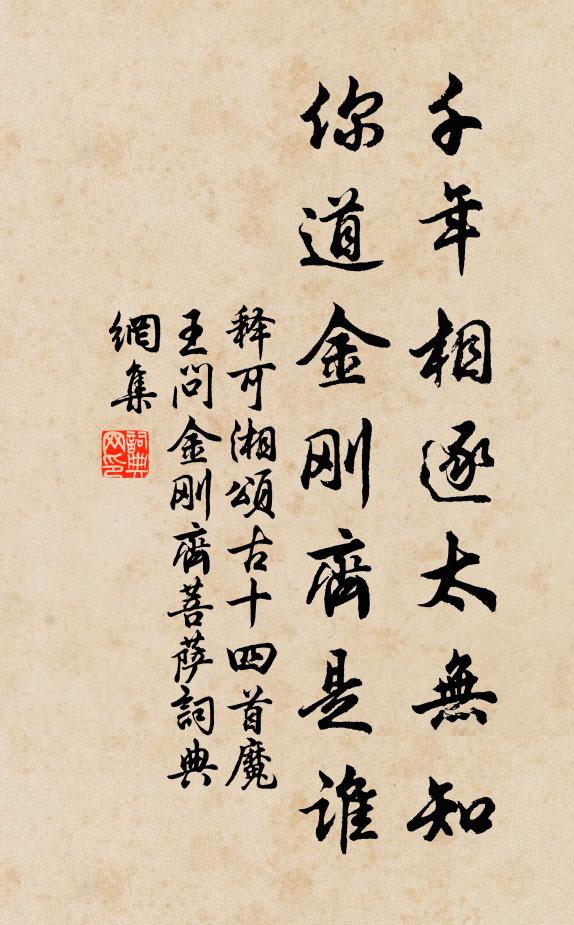 千年相逐太無知
你道金刚齊是誰
释可湘頌古十四首魔
王问金刚齊菩萨詞典
網集
詞典网印